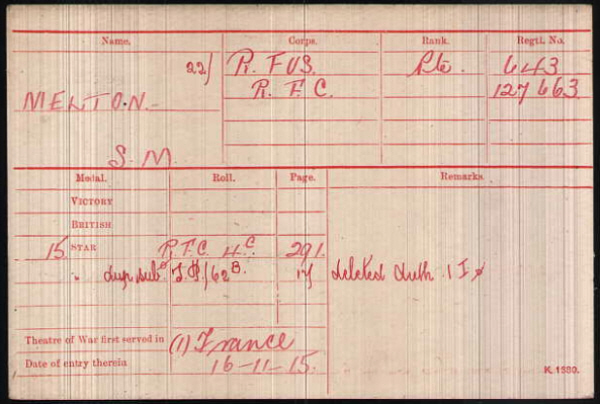 Name. Corps. Rank. Regtl. No.
22/ R. FUS. Pte. 643
R. F. C. 127663
MELTON.
S. M.
Medal. Roll. Page. Remarks.
VICTORY
BRITISH
15 STAR R.F.C. 4C. 291.
" dup sub 62B. 17 deleted Auth 1
Theatre of War first served in (1) France
Date of entry therein 16-11-15.
K. 1380.